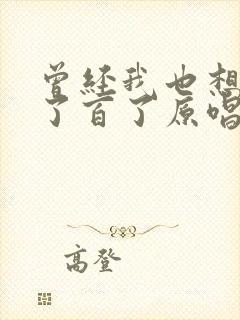 曾经我也想
了百了原唱
高登